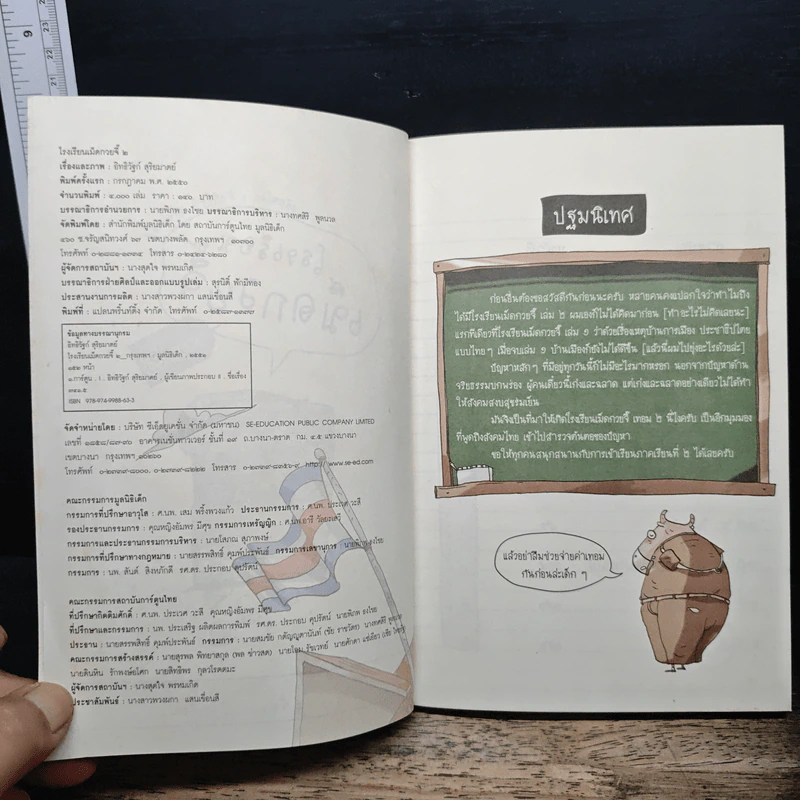 โรงเรียนเม็ดกวยจี๊ ๒
เรื่องและภาพ : อิทธิวัฐก์ สุริยมาตย์
พิมพ์ครั้งแรก : กรกฎาคม พ.ศ. ๒๕๕๐
จำนวนพิมพ์ : ๔,๐๐๐ เล่ม ราคา : ๑๔๐ บาท
บรรณาธิการอำนวยการ : นายพิภพ ธงไชย บรรณาธิการบริหาร : นางทศสิริ พูลนวล
จัดพิมพ์โดย : สำนักพิมพ์มูลนิธิเด็ก โดย สถาบันการ์ตูนไทย มูลนิธิเด็ก
๔๖๐ ซ.จรัญสนิทวงศ์ ๖๙ เขตบางพลัด กรุงเทพฯ ๑๐๗๐๐
ผู้จัดการสถาบันฯ : นางสุดใจ พรหมเกิด
บรรณาธิการฝ่ายศิลป์และออกแบบรูปเล่ม : สุรนิตี้ ทักมีทอง
ประสานงานการผลิต : นางสาวพวงผกา แสนเขื่อนสี
พิมพ์ที่ : แปลนพริ้นท์ติ้ง จำกัด
ข้อมูลทางบรรณานุกรม
อิทธิวัฐก์ สุริยมาตย์
โรงเรียนเม็ดกวยจี๊ ๒_กรุงเทพฯ : มูลนิธิเด็ก, ๒๕๕๐
๑๕๒ หน้า
๑.การ์ตูน I. อิทธิวัฐก์ สุริยมาตย์, ผู้เขียนภาพประกอบ II. ชื่อเรื่อง
๗๔๑.๕
ISBN 978-974-9988-63-3
จัดจำหน่ายโดย : บริษัท ซีเอ็ดยูเคชั่น จำกัด (มหาชน) SE-EDUCATION PUBLIC COMPANY LIMITED
อาคารเนชั่นทาวเวอร์ ชั้นที่ ๑๙ ถ.บางนา-ตราด กม. ๔.๕ แขวงบางนา
เขตบางนา กรุงเทพฯ ๑๐๒๖๐
http://www.se-ed.com
คณะกรรมการมูลนิธิเด็ก
กรรมการที่ปรึกษาอาวุโส : ศ.นพ. เสม พริ้งพวงแก้ว ประธานกรรมการ : ศ.นพ. ประเวศ วะสี
รองประธานกรรมการ : คุณหญิงอัมพร มีศุข กรรมการเหรัญญิก : ศ.นพ.อารี วัลยะเสวี
กรรมการและประธานกรรมการบริหาร : นายโสภณ สุภาพงษ์
กรรมการที่ปรึกษาทางกฎหมาย : นายสรรพสิทธิ์ คุมพ์ประพันธ์ กรรมการเลขานุการ : นายพิภพ ธงไชย
กรรมการ : นพ. สันต์ สิงหภักดี รศ.ดร. ประกอบ คุปรัตน์
คณะกรรมการสถาบันการ์ตูนไทย
ที่ปรึกษากิตติมศักดิ์ : ศ.นพ. ประเวศ วะสี คุณหญิงอัมพร มีศุข
ที่ปรึกษาและกรรมการ : นพ. ประเสริฐ ผลิตผลการพิมพ์ รศ.ดร. ประกอบ คุปรัตน์ นายพิภพ ธงไชย
ประธาน : นายสรรพสิทธิ์ คุมพ์ประพันธ์ กรรมการ : นายสมชัย กตัญญุตานันท์ (ชัย ราชวัตร) นางทศสิริ
คณะกรรมการสร้างสรรค์ : นายสุรพล พิทยาสกุล (พล ข่าวสด) นายโอม รัชเวทย์ นายศักดา แซ่เอียว
นายดินหิน รักพงษ์อโศก นายสิทธิพร กุลวโรตตมะ
ผู้จัดการสถาบันฯ : นางสุดใจ พรหมเกิด
ประชาสัมพันธ์ : นางสาวพวงผกา แสนเขื่อนสี
ปฐมนิเทศ
ก่อนอื่นต้องขอสวัสดีกันก่อนนะครับ หลายคนคงแปลกใจว่าทำไมถึง
ได้มีโรงเรียนเม็ดกวยจี๊ เล่ม ๒ ผมเองก็ไม่ได้คิดมาก่อน [ทำอะไรไม่คิดเลยนะ]
แรกที่เดียวที่โรงเรียนเม็ดกวยจี๊ เล่ม ๑ ว่าด้วยเรื่องเหตุบ้านการเมือง ประชาธิปไตย
แบบไทยๆ เมื่อจบเล่ม ๑ บ้านเมืองก็ยังไม่ได้ดีขึ้น [แล้วนี่ผมไปยุ่งอะไรด้วยล่ะ]
ปัญหาหลักๆ ที่มีอยู่ทุกวันนี้ก็ไม่มีอะไรมากหรอก นอกจากปัญหาด้าน
จริยธรรมบกพร่อง ผู้คนเดี๋ยวนี้เก่งและฉลาด แต่เก่งและฉลาดอย่างเดียวไม่ได้ทำ
ให้สังคมสงบสุขร่มเย็น
มันจึงเป็นที่มาให้เกิดโรงเรียนเม็ดกวยจี๊ เทอม ๒ นี้ไงครับ เป็นอีกมุมมอง
ที่พูดถึงสังคมไทย เข้าไปสำรวจต้นตอของปัญหา
ขอให้ทุกคนสนุกสนานกับการเข้าเรียนภาคเรียนที่ ๒ ได้เลยครับ
แล้วอย่าลืมช่วยจ่ายค่าเทอม
กันก่อนล่ะเด็ก ๆ